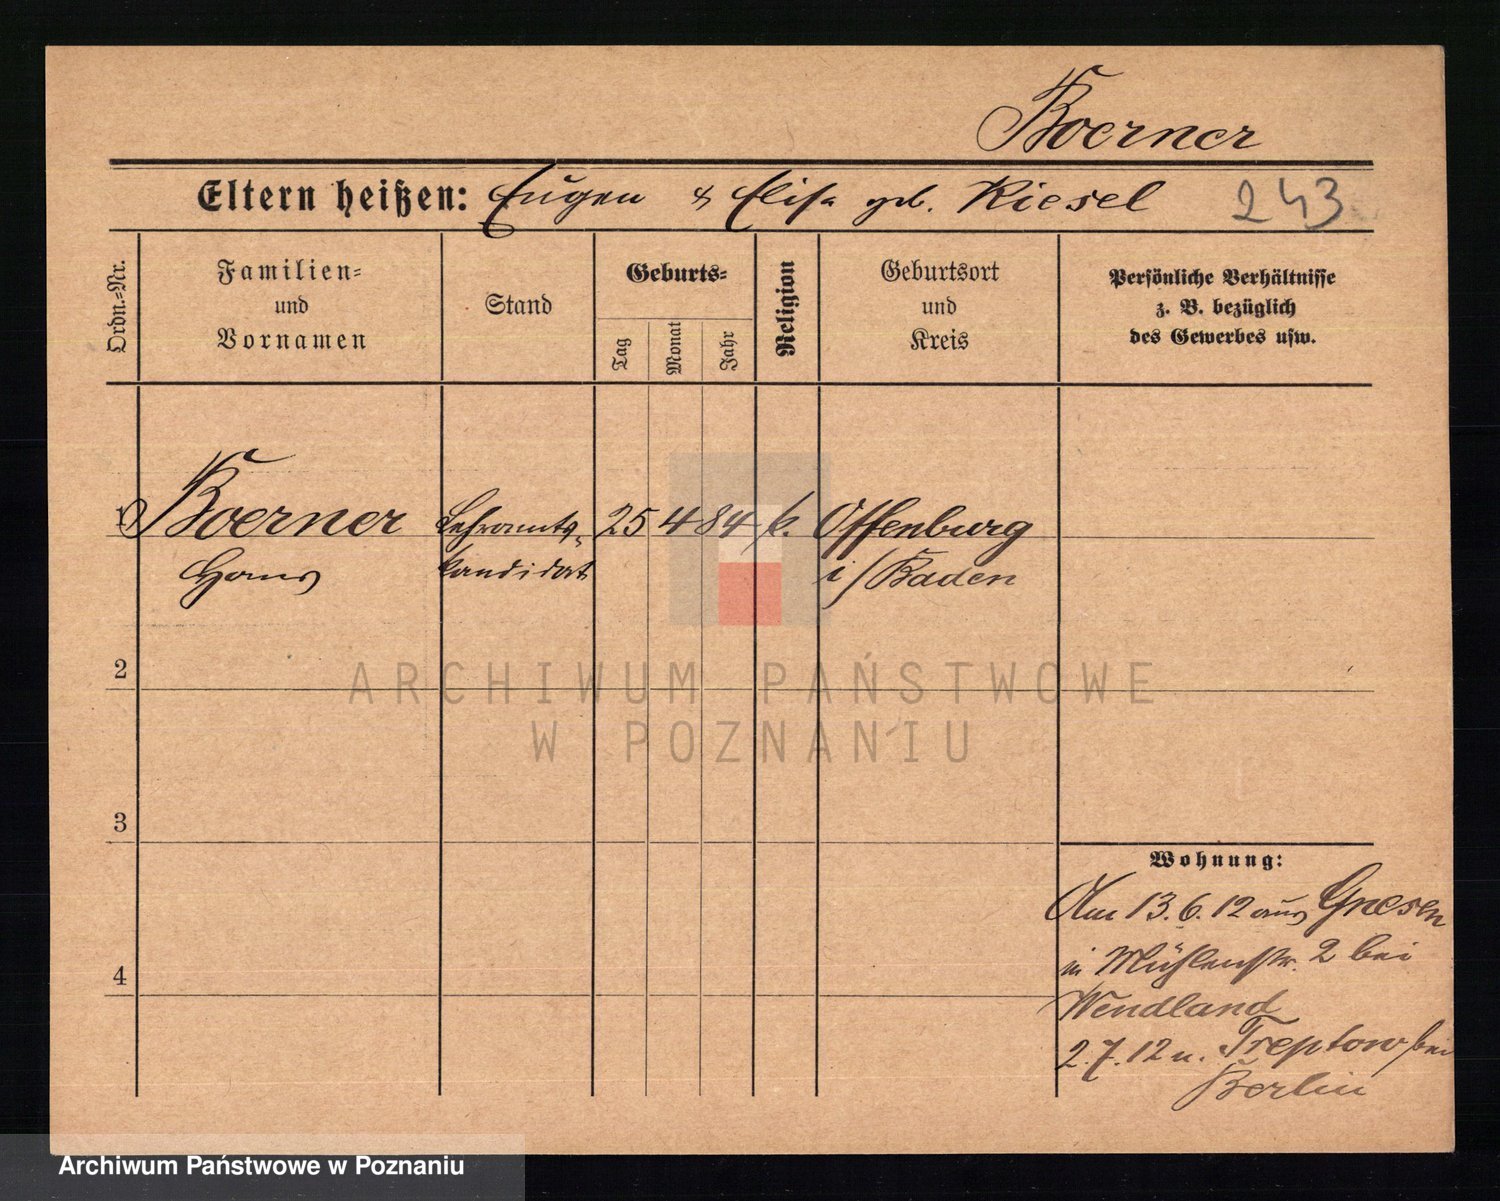 Boerner
Eltern heißen: Eugen & Elisa geb. Kiesel
243
Ordn.=Nr.
Familien=
und
Vornamen
Stand
Geburts=
Tag
Monat
Jahr
Religion
Geburtsort
und
Kreis
Persönliche Verhältnisse
z. B. bezüglich
des Gewerbes usw.
1 Boerner Lehramts= 25 4 84 k. Offenburg
Hans kandidat i/Baden
2
ARCHIWUM PAŃSTWOWE
W POZNANIU
3
Wohnung:
Am 13.6.12 aus Gnesen
in Mühlenstr. 2 bei
4
Wendland
2.7.12 n. Treptow bei
Berlin
Archiwum Państwowe w Poznaniu